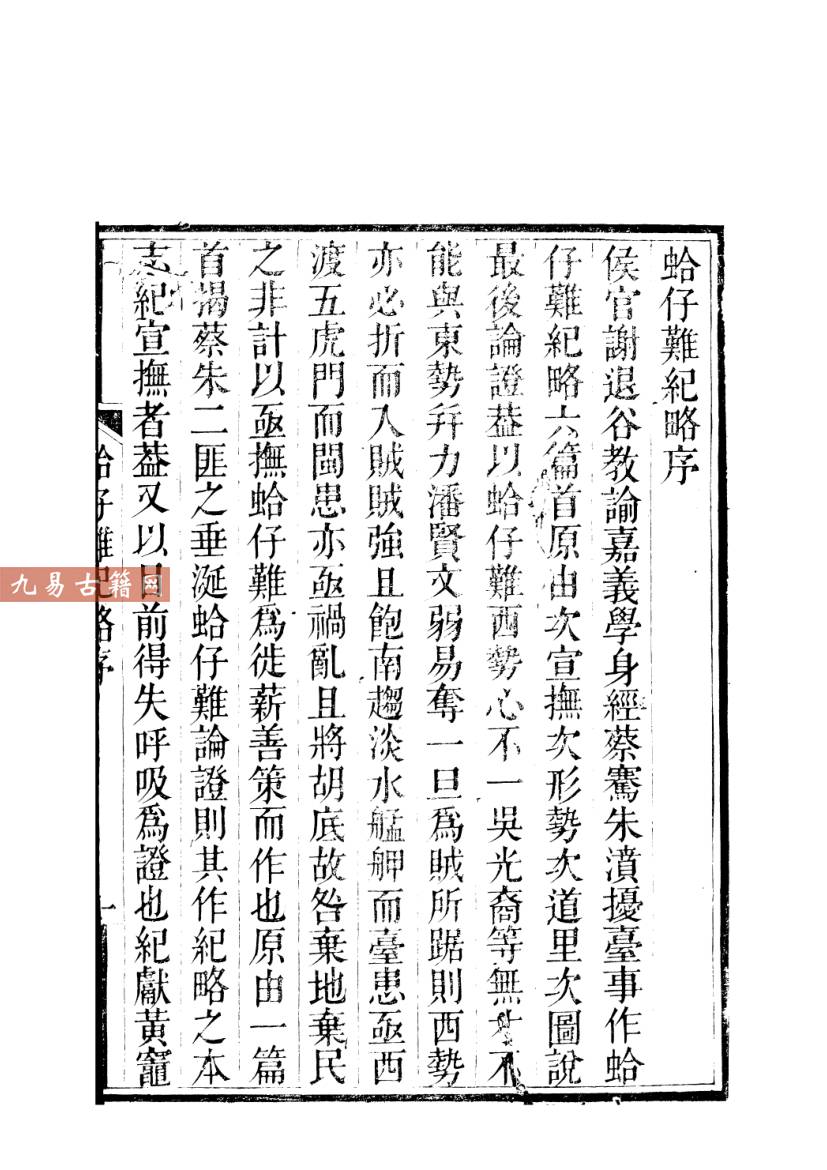 蛤仔難紀略序
侯官謝退谷教諭嘉義學身經蔡騫朱濆擾臺事作蛤
仔難紀略六篇首原由次宣撫次形勢次道里次圖說
最後論證葢以蛤仔難西勢心不一吳光裔等無才不
能與東勢幷力潘賢文弱易奪一旦爲賊所踞則西勢
亦必折而入賊賊強且飽南趨淡水艋舺而臺患亟西
渡五虎門而閩患亦亟禍亂且將胡底故咎棄地棄民
之非計以亟撫蛤仔難爲徙薪善策而作也原由一篇
首揭蔡朱二匪之垂涎蛤仔難論證則其作紀略之本
志紀宣撫者葢又以目前得失呼吸爲證也紀獻黃竈
蛤仔難紀略序
一
九易古籍网